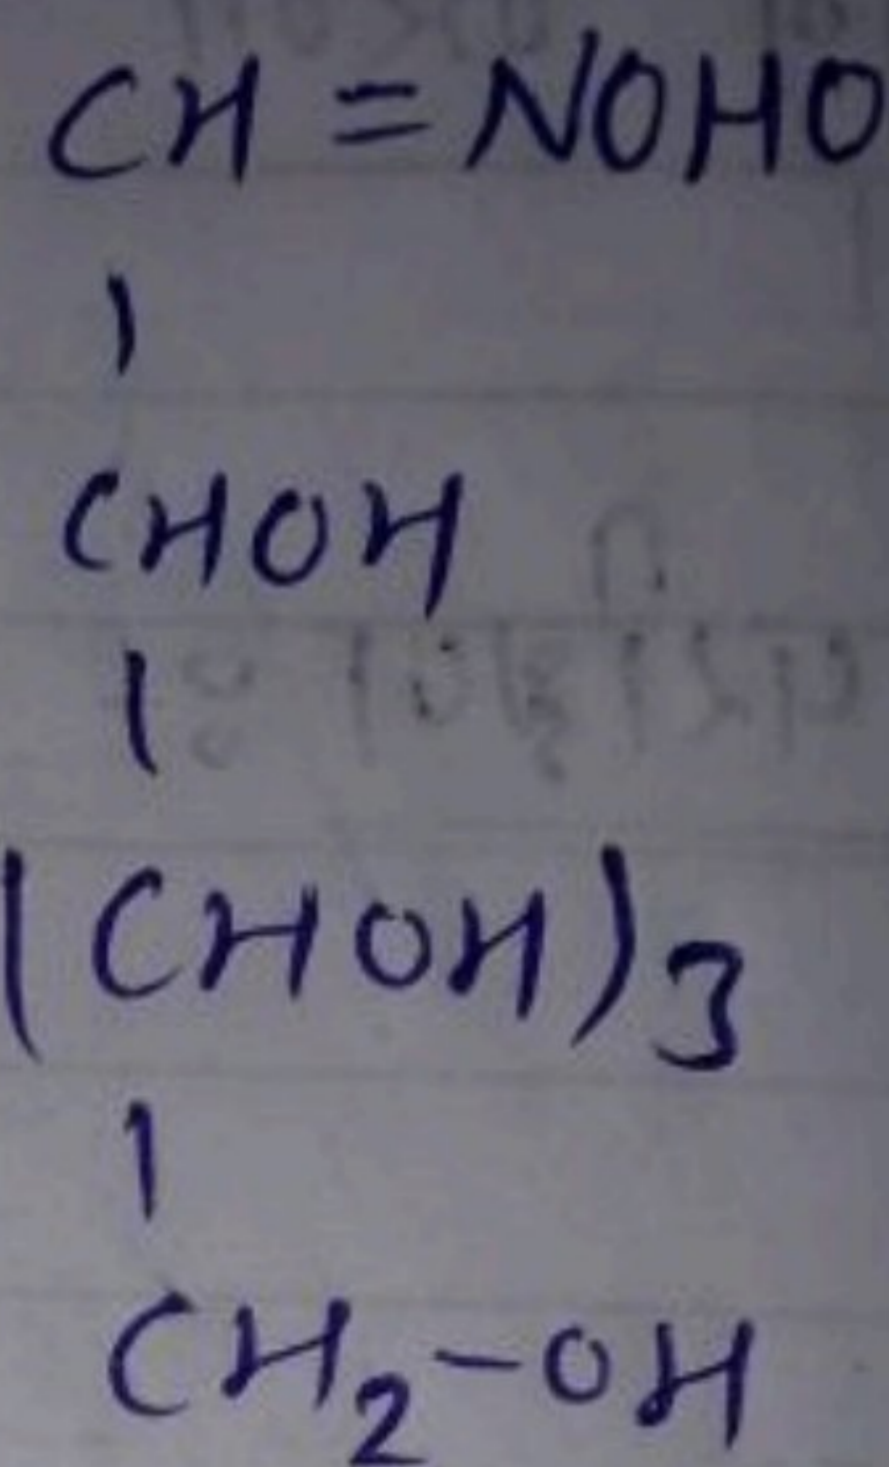 CH = NOHO
|
CHOH
|
(CHOH)3
|
CH2-OH